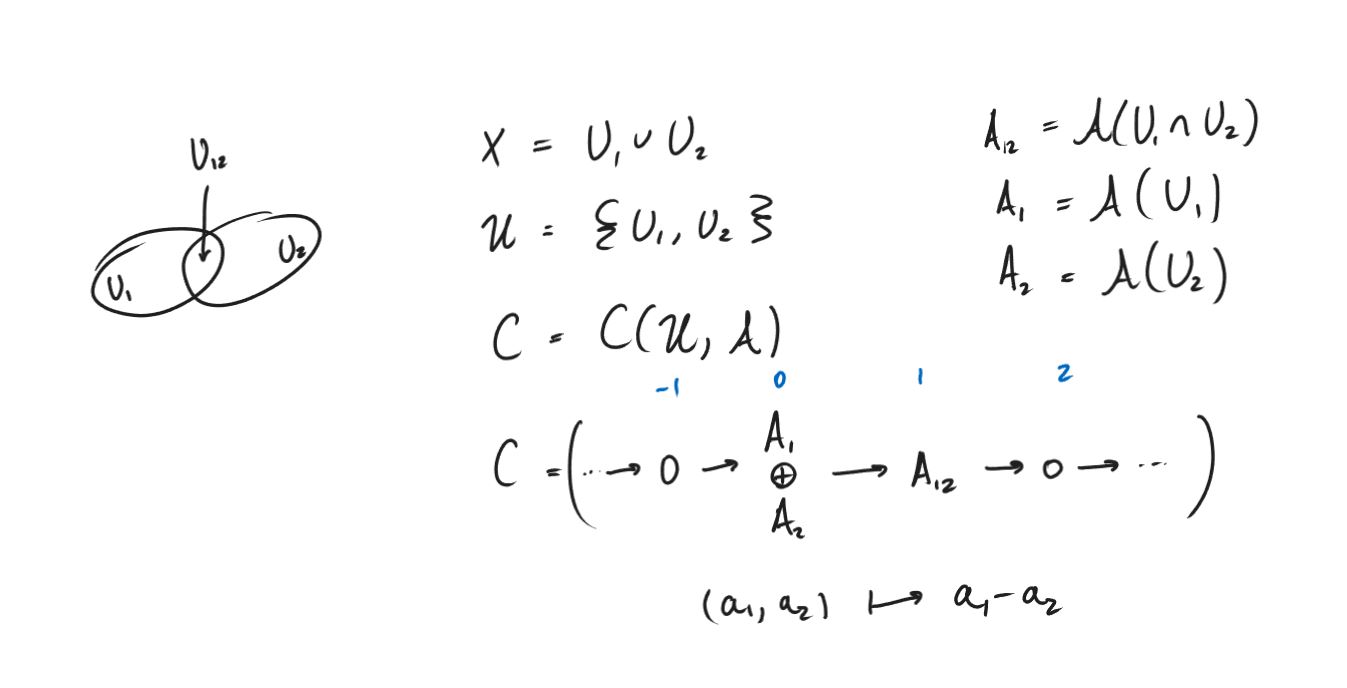 U₁₂
U₁
U₂
X = U₁ ∪ U₂
𝒰 = {U₁, U₂}
C = C(𝒰, 𝒜)
A₁₂ = 𝒜(U₁ ∩ U₂)
A₁ = 𝒜(U₁)
A₂ = 𝒜(U₂)
-1 0 1 2
C = (··· → 0 → A₁ ⊕ A₂ → A₁₂ → 0 → ···)
(a₁, a₂) ↦ a₁ - a₂